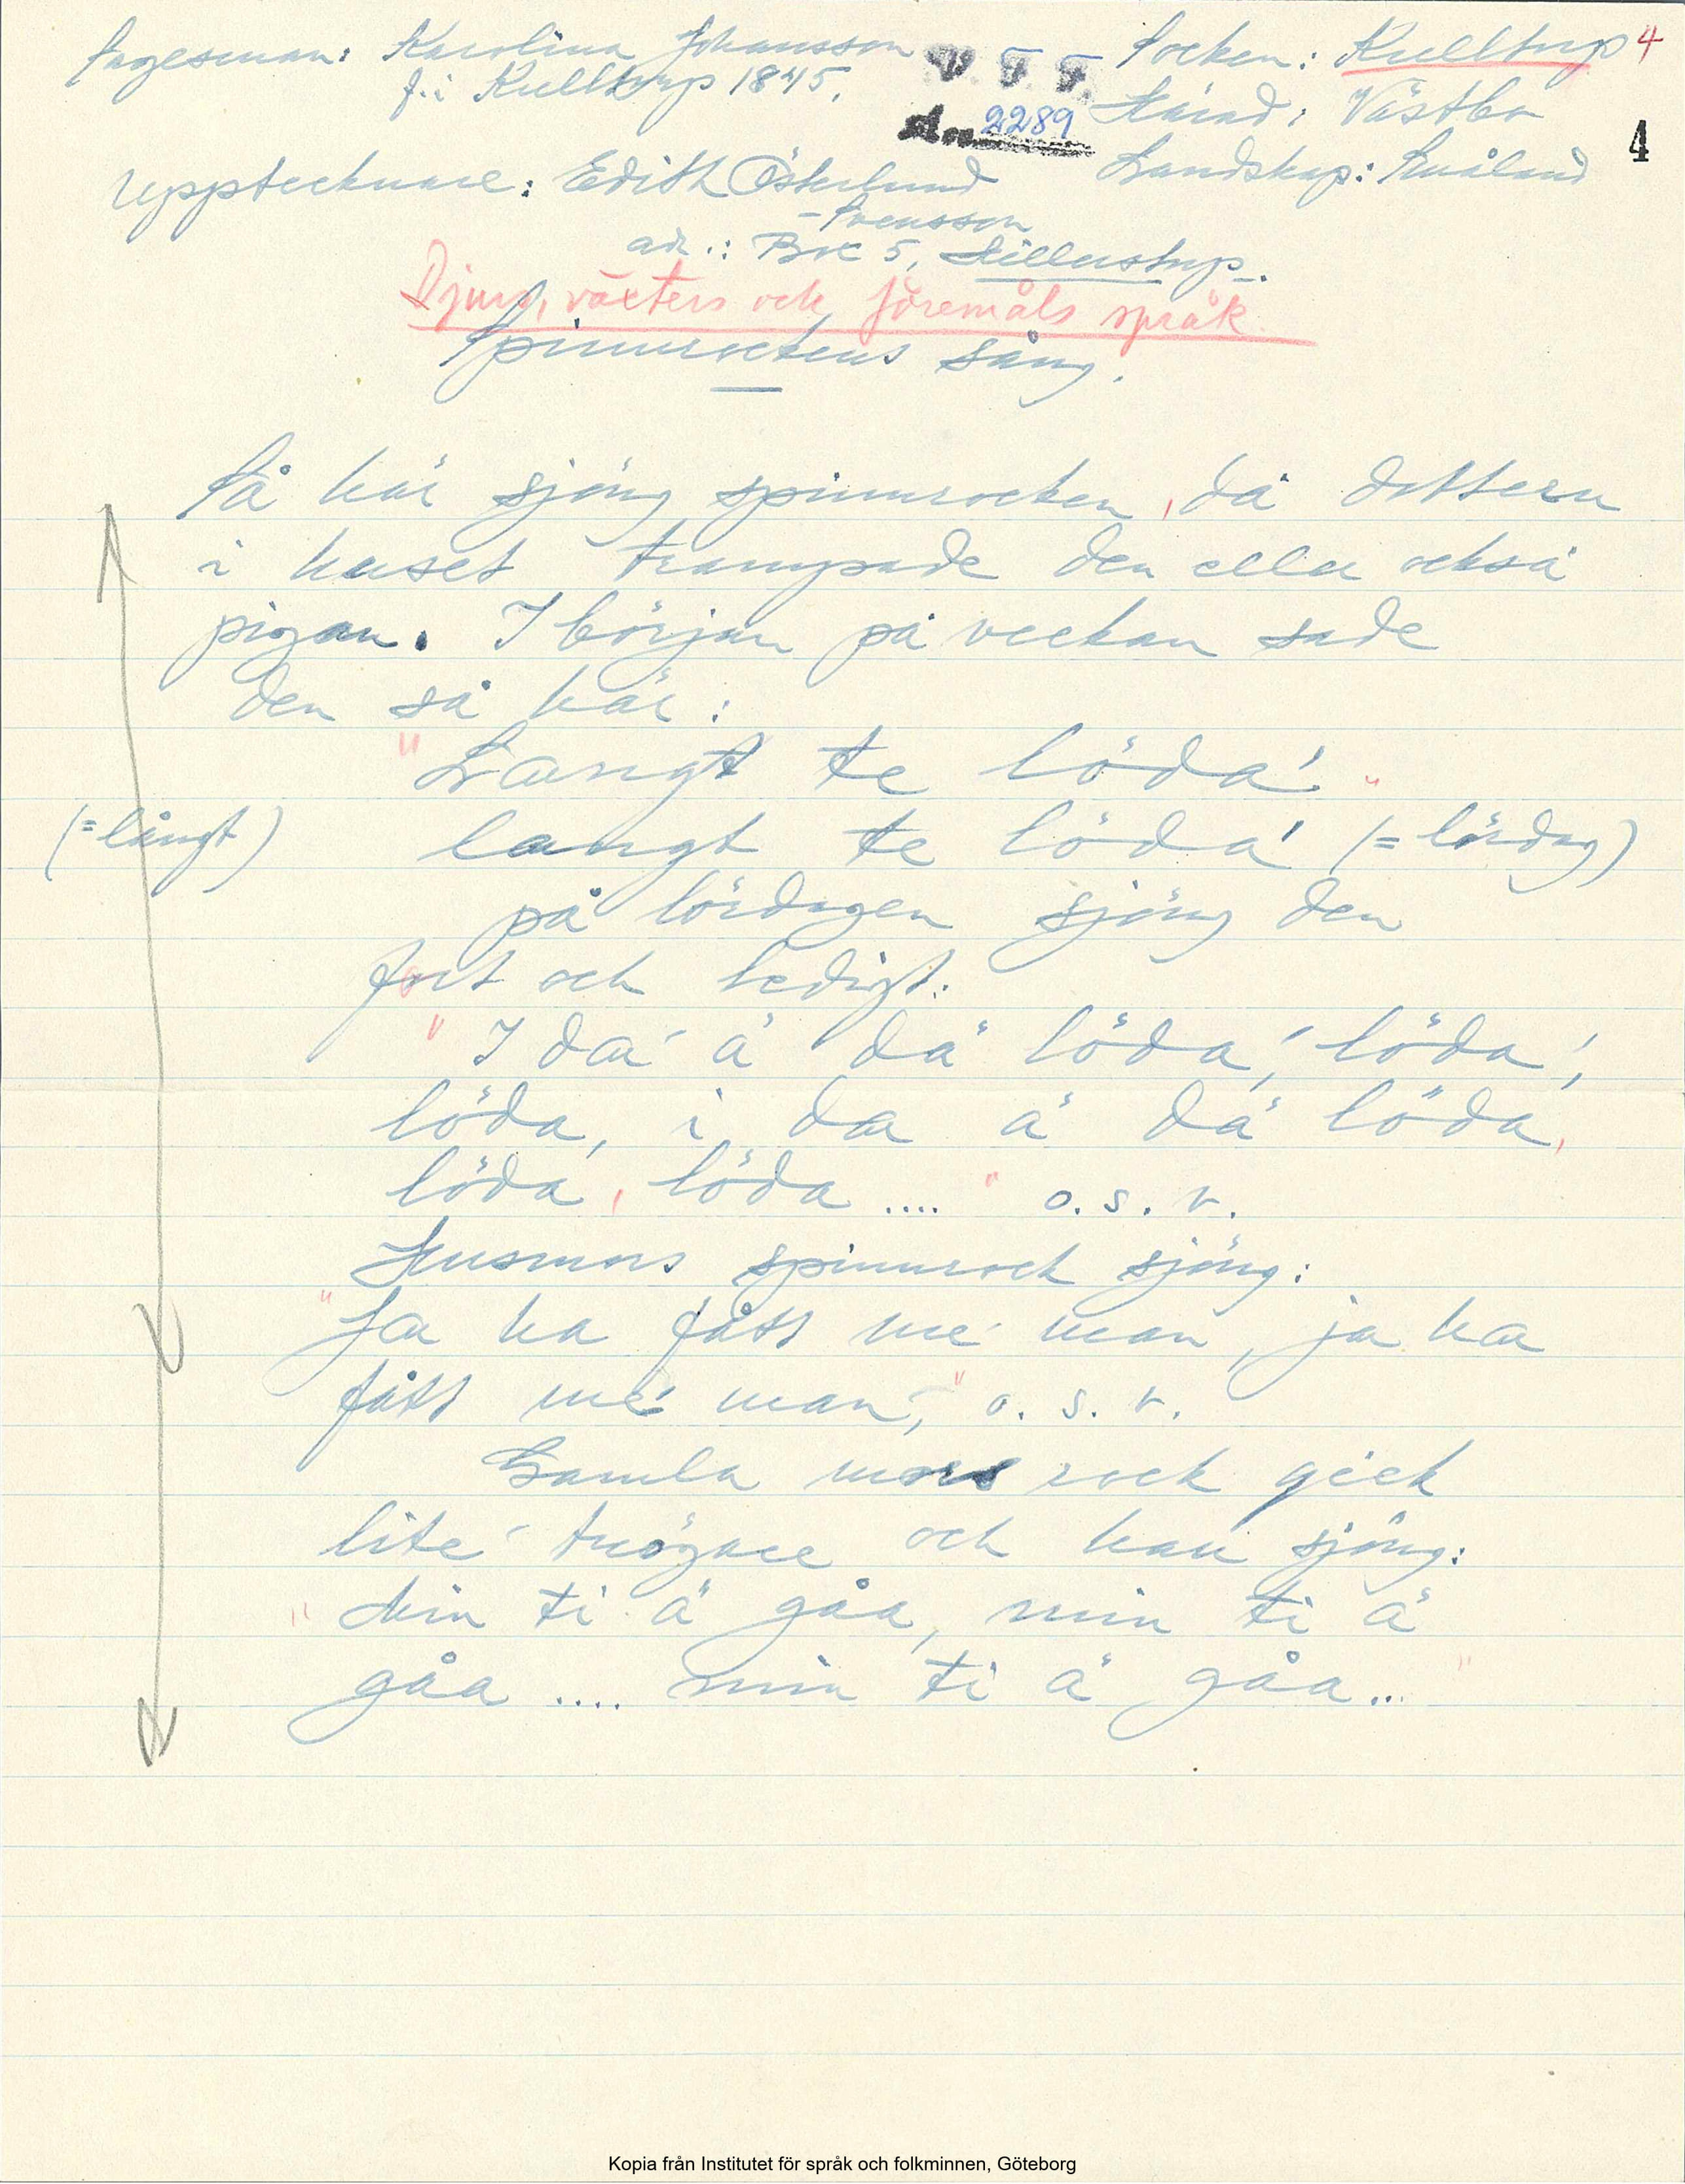 Sagesman: Karolina Johansson
f. i Kulltorp 1845.
V. F. F.
2289
Socken: Kulltorp 4
Härad: Västbo
Landskap: Småland
4
Upptecknare: Edith Österlund
-Svensson
adr.: Box 5, Hillerstorp.
Djurs, växters och föremåls språk.
Spinnrockens sång.
Så här sjöng spinnrocken, då dottern
i huset trampade den eller också
pigan. I början på veckan sade
den så här:
"Langt te löda'."
(=långt) langt te löda' (= lördag)
på lördagen sjöng den
fort och ledigt:
"I da' ä dä löda', löda',
löda, i da ä dä löda,
löda, löda ...." o.s.v.
Husmors spinnrock sjöng:
"Ja ha fått me' man, ja ha
fått me' man," o.s.v.
Gamla mors rock gick
lite' trögare och han sjöng:
"Min ti ä gåa, min ti ä
gåa .... min ti ä gåa..."
Kopia från Institutet för språk och folkminnen, Göteborg